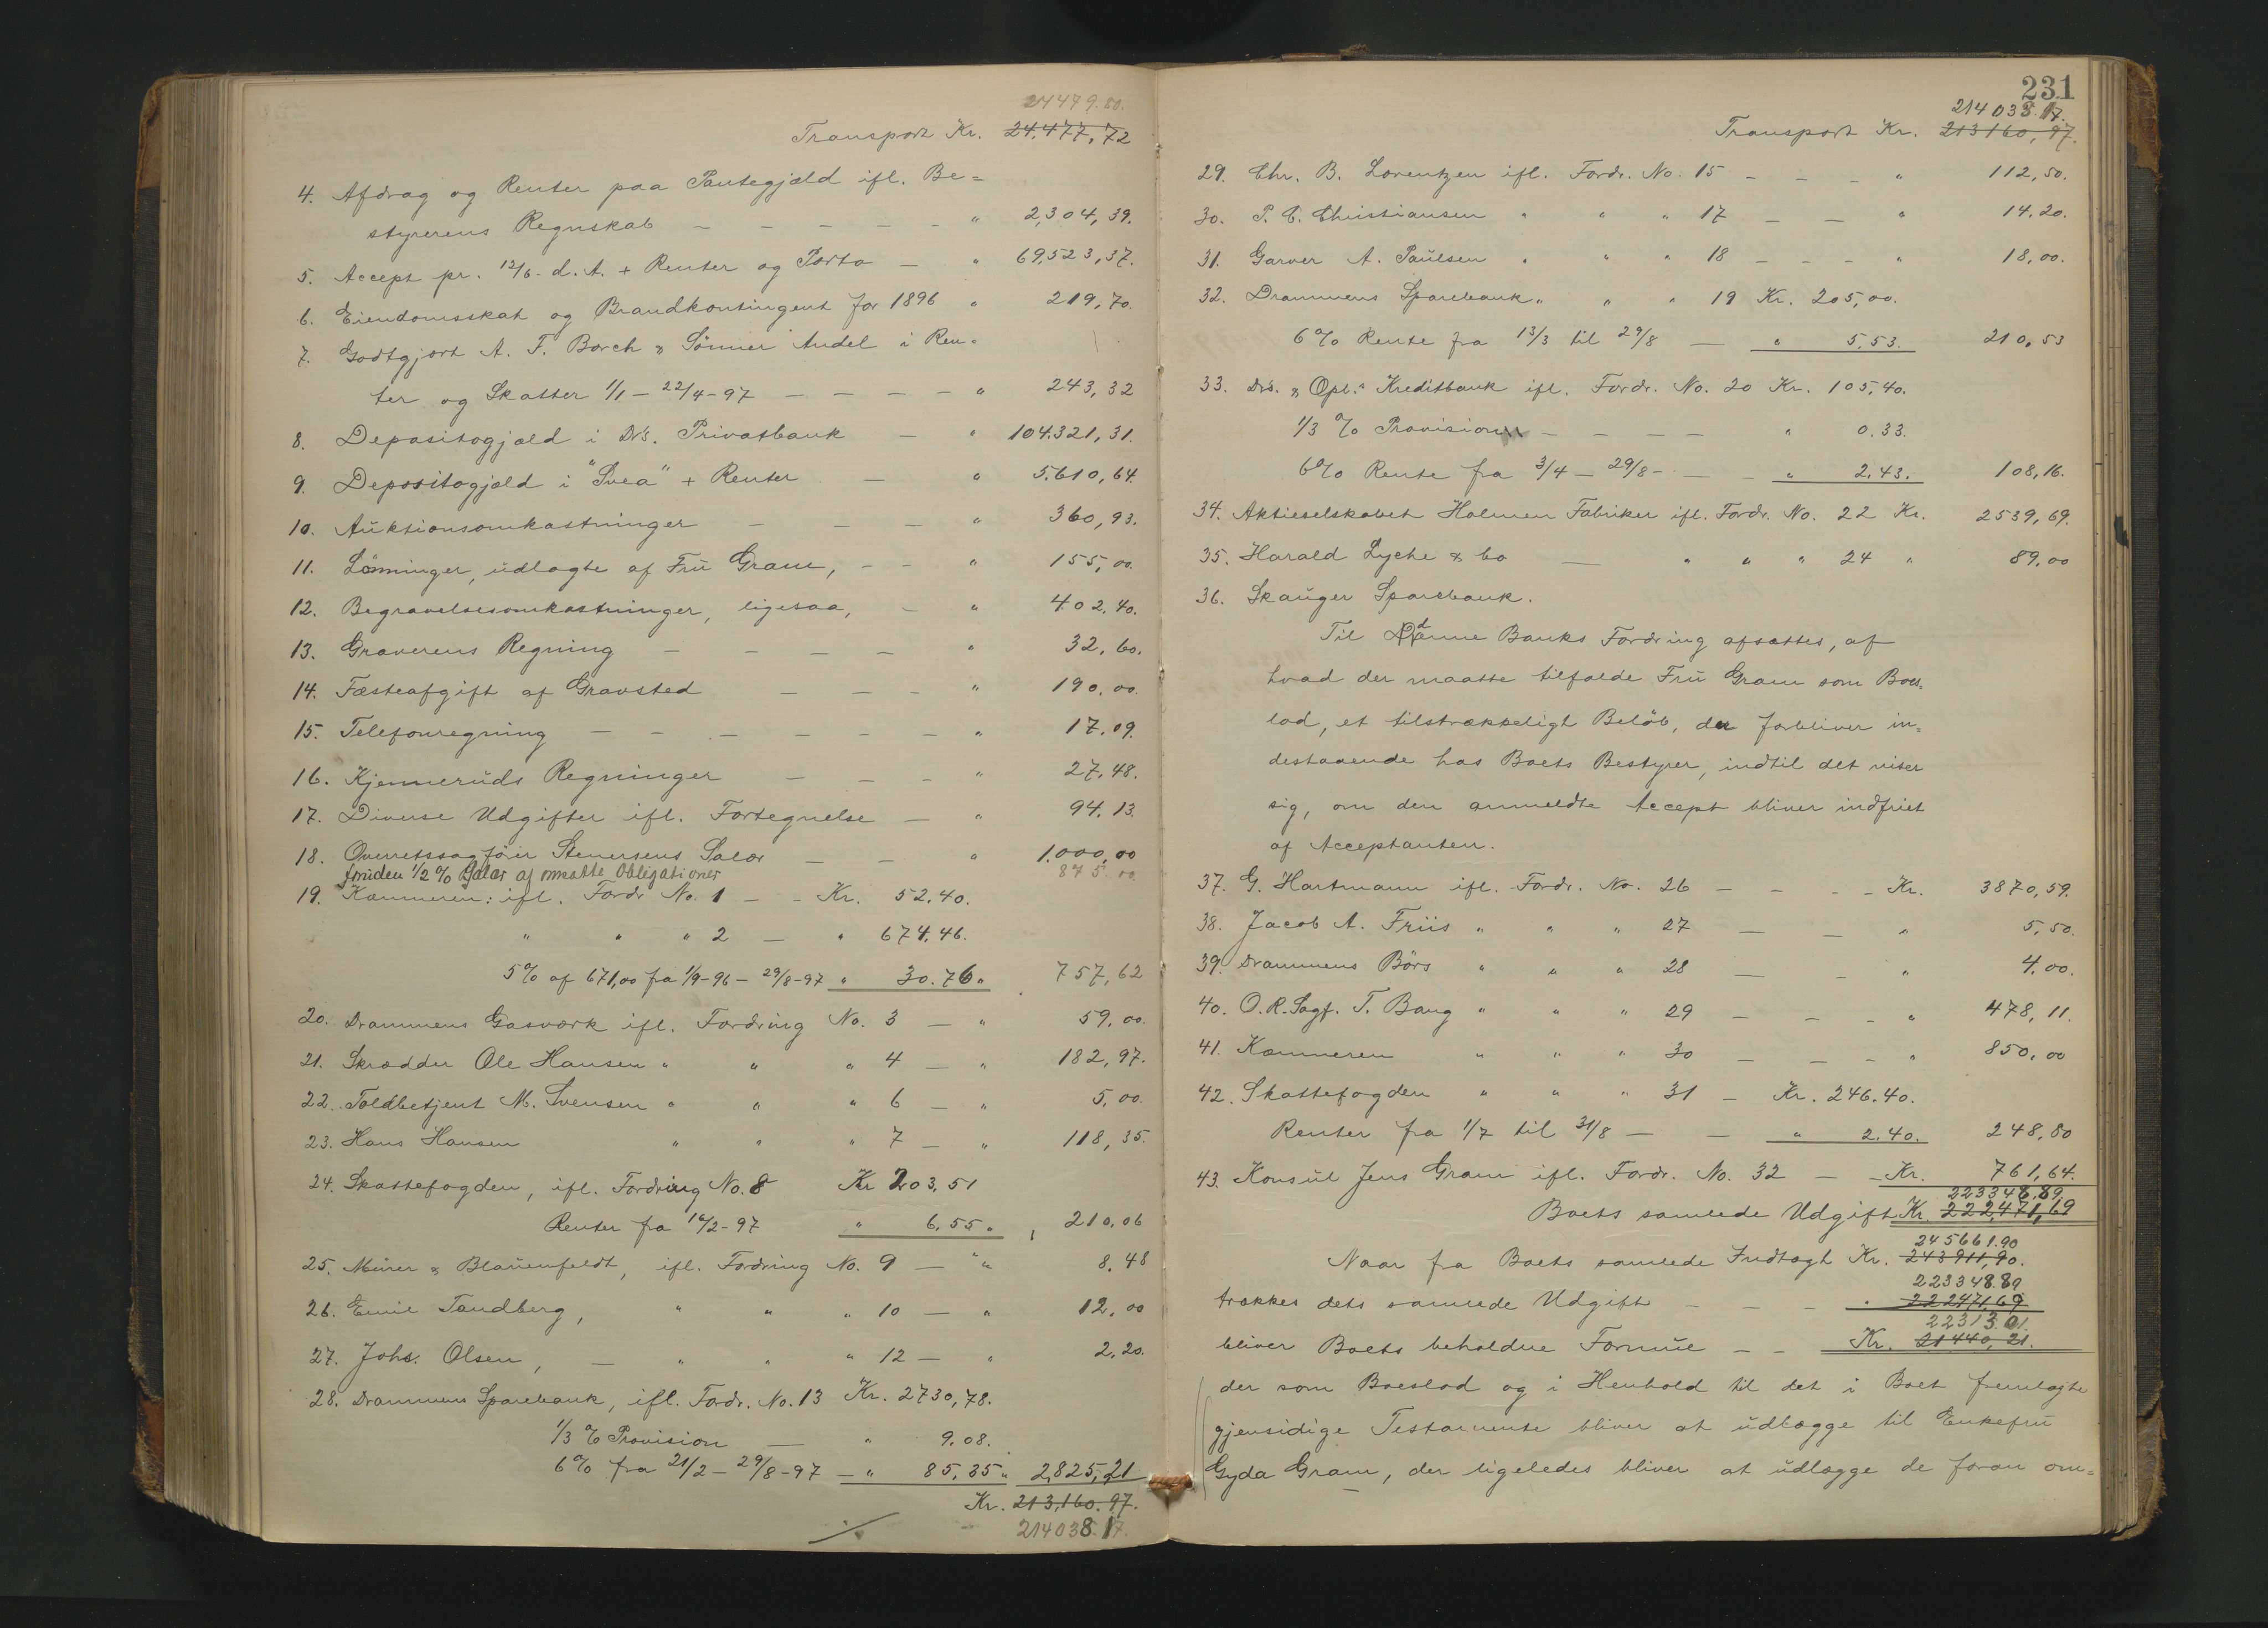 24479.80.
Transport Kr. 24.477,72
4. Afdrag og Renter paa Pantegjæld ifl. Be=
styrerens Regnskab — — — — — " 2,304,39.
5. Accept pr. 12/6 d. A. + Renter og Porto — " 69,523,37.
6. Eiendomsskat og Brandkontingent for 1896 " 219,70.
7. Godtgjort A. F. Borch & Sönner Andel i Ren=
ter og Skatter 1/1 — 22/4-97 — — — — " 243,32
8. Depositogjæld i Drs. Privatbank — " 104.321,31.
9. Depositogjæld i "Svea" + Renter — " 5.610,64.
10. Auktionsomkostninger — — — " 360,93.
11. Lönninger, udlagte af Fru Gram, — — " 155,00.
12. Begravelsesomkostninger, ligesaa, — " 402.40.
13. Graverens Regning — — — — " 32.60.
14. Fæsteafgift af Gravsted — — — " 190.00.
15. Telefonregning — — — — — — " 17.09.
16. Kjenneruds Regninger — — — " 27.48.
17. Diverse Udgifter ifl. Fortegnelse — " 94.13.
18. Overretssagförer Stenersens Salær — — " 1.000,00
foruden 1/2 % Salær af omsatte Obligationer 875.00
19. Kæmneren: ifl. Fordr No. 1 — — Kr. 52.40.
" " " 2 — " 674.46.
5% af 671,00 fra 1/9-96 — 29/8-97 " 30.76 " 757,62
20. Drammens Gasværk ifl. Fordring No. 3 — " 59,00.
21. Skrædder Ole Hansen " " " 4 — " 182,97.
22. Toldbetjent M. Svensen " " " 6 — " 5,00.
23. Hans Hansen " " " 7 — " 118,35.
24. Skattefogden, ifl. Fordring No. 8 Kr 203,51
Renter fra 16/2-97 " 6,55 " 210.06
25. Meirer & Blauenfeldt, ifl. Fordring No. 9 — " 8.48
26. Emil Tandberg, " " " 10 — " 12,00
27. Johs. Olsen, — " " " 12 — " 2,20.
28. Drammens Sparebank, ifl. Fordr. No. 13 Kr. 2730,78.
1/3 % Provision — " 9.08.
6% fra 21/2 — 29/8-97 — " 85,35 " 2,825,21
Kr. 213,160.97.
214038.17.
231
214038.17.
Transport Kr. 213160,97.
29. Chr. B. Lorentzen ifl. Fordr. No. 15 — — — " 112,50.
30. P. C. Christiansen " " " 17 — — " 14.20.
31. Garver A. Paulsen " " " 18 — — — " 18,00.
32. Drammens Sparebank " " " 19 Kr. 205,00.
6% Rente fra 13/3 til 29/8 — " 5,53. 210,53
33. Drs. & Opl.s Kreditbank ifl. Fordr. No. 20 Kr. 105,40.
1/3 % Provision — — — — " 0.33.
6% Rente fra 3/4 — 29/8 — — — " 2,43. 108,16.
34. Aktieselskabet Holmen Fabriker ifl. Fordr. No. 22 Kr. 2539,69.
35. Harald Lyche & Co — " " " 24 " 89,00
36. Skauger Sparebank.
Til denne Banks Fordring afsættes, af
hvad der maatte tilfalde Fru Gram som Boes=
lod, et tilstrækkeligt Belöb, der forbliver in=
destaaende hos Boets Bestyrer, indtil det viser
sig, om den anmeldte Accept bliver indfriet
af Acceptanten.
37. G. Hartmann ifl. Fordr. No. 26 — — — Kr. 3870,59.
38. Jacob A. Friis " " " 27 — — " 5,50.
39. Drammens Börs " " " 28 — — " 4.00.
40. O.R.Sagf. T. Bang " " " 29 — — — " 478,11.
41. Kæmneren " " " 30 — — — " 850,00
42. Skattefogden " " " 31 — Kr. 246.40.
Renter fra 1/7 til 31/8 — — " 2.40. 248,80
43. Konsul Jens Gram ifl. Fordr. No. 32 — — Kr. 761,64.
223348.89.
Boets samlede Udgift Kr. 222,471,69
245661.90
Naar fra Boets samlede Indtægt Kr. 243911,90.
223348.89
trækkes dets samlede Udgift — — — " 222471,69
22313.01.
bliver Boets beholdne Formue — — Kr. 21440,21.
der som Boeslod og i Henhold til det i Boet fremlagte
gjensidige Testamente bliver at udlægge til Enkefru
Gyda Gram, der ligeledes bliver at udlægge de foran om=